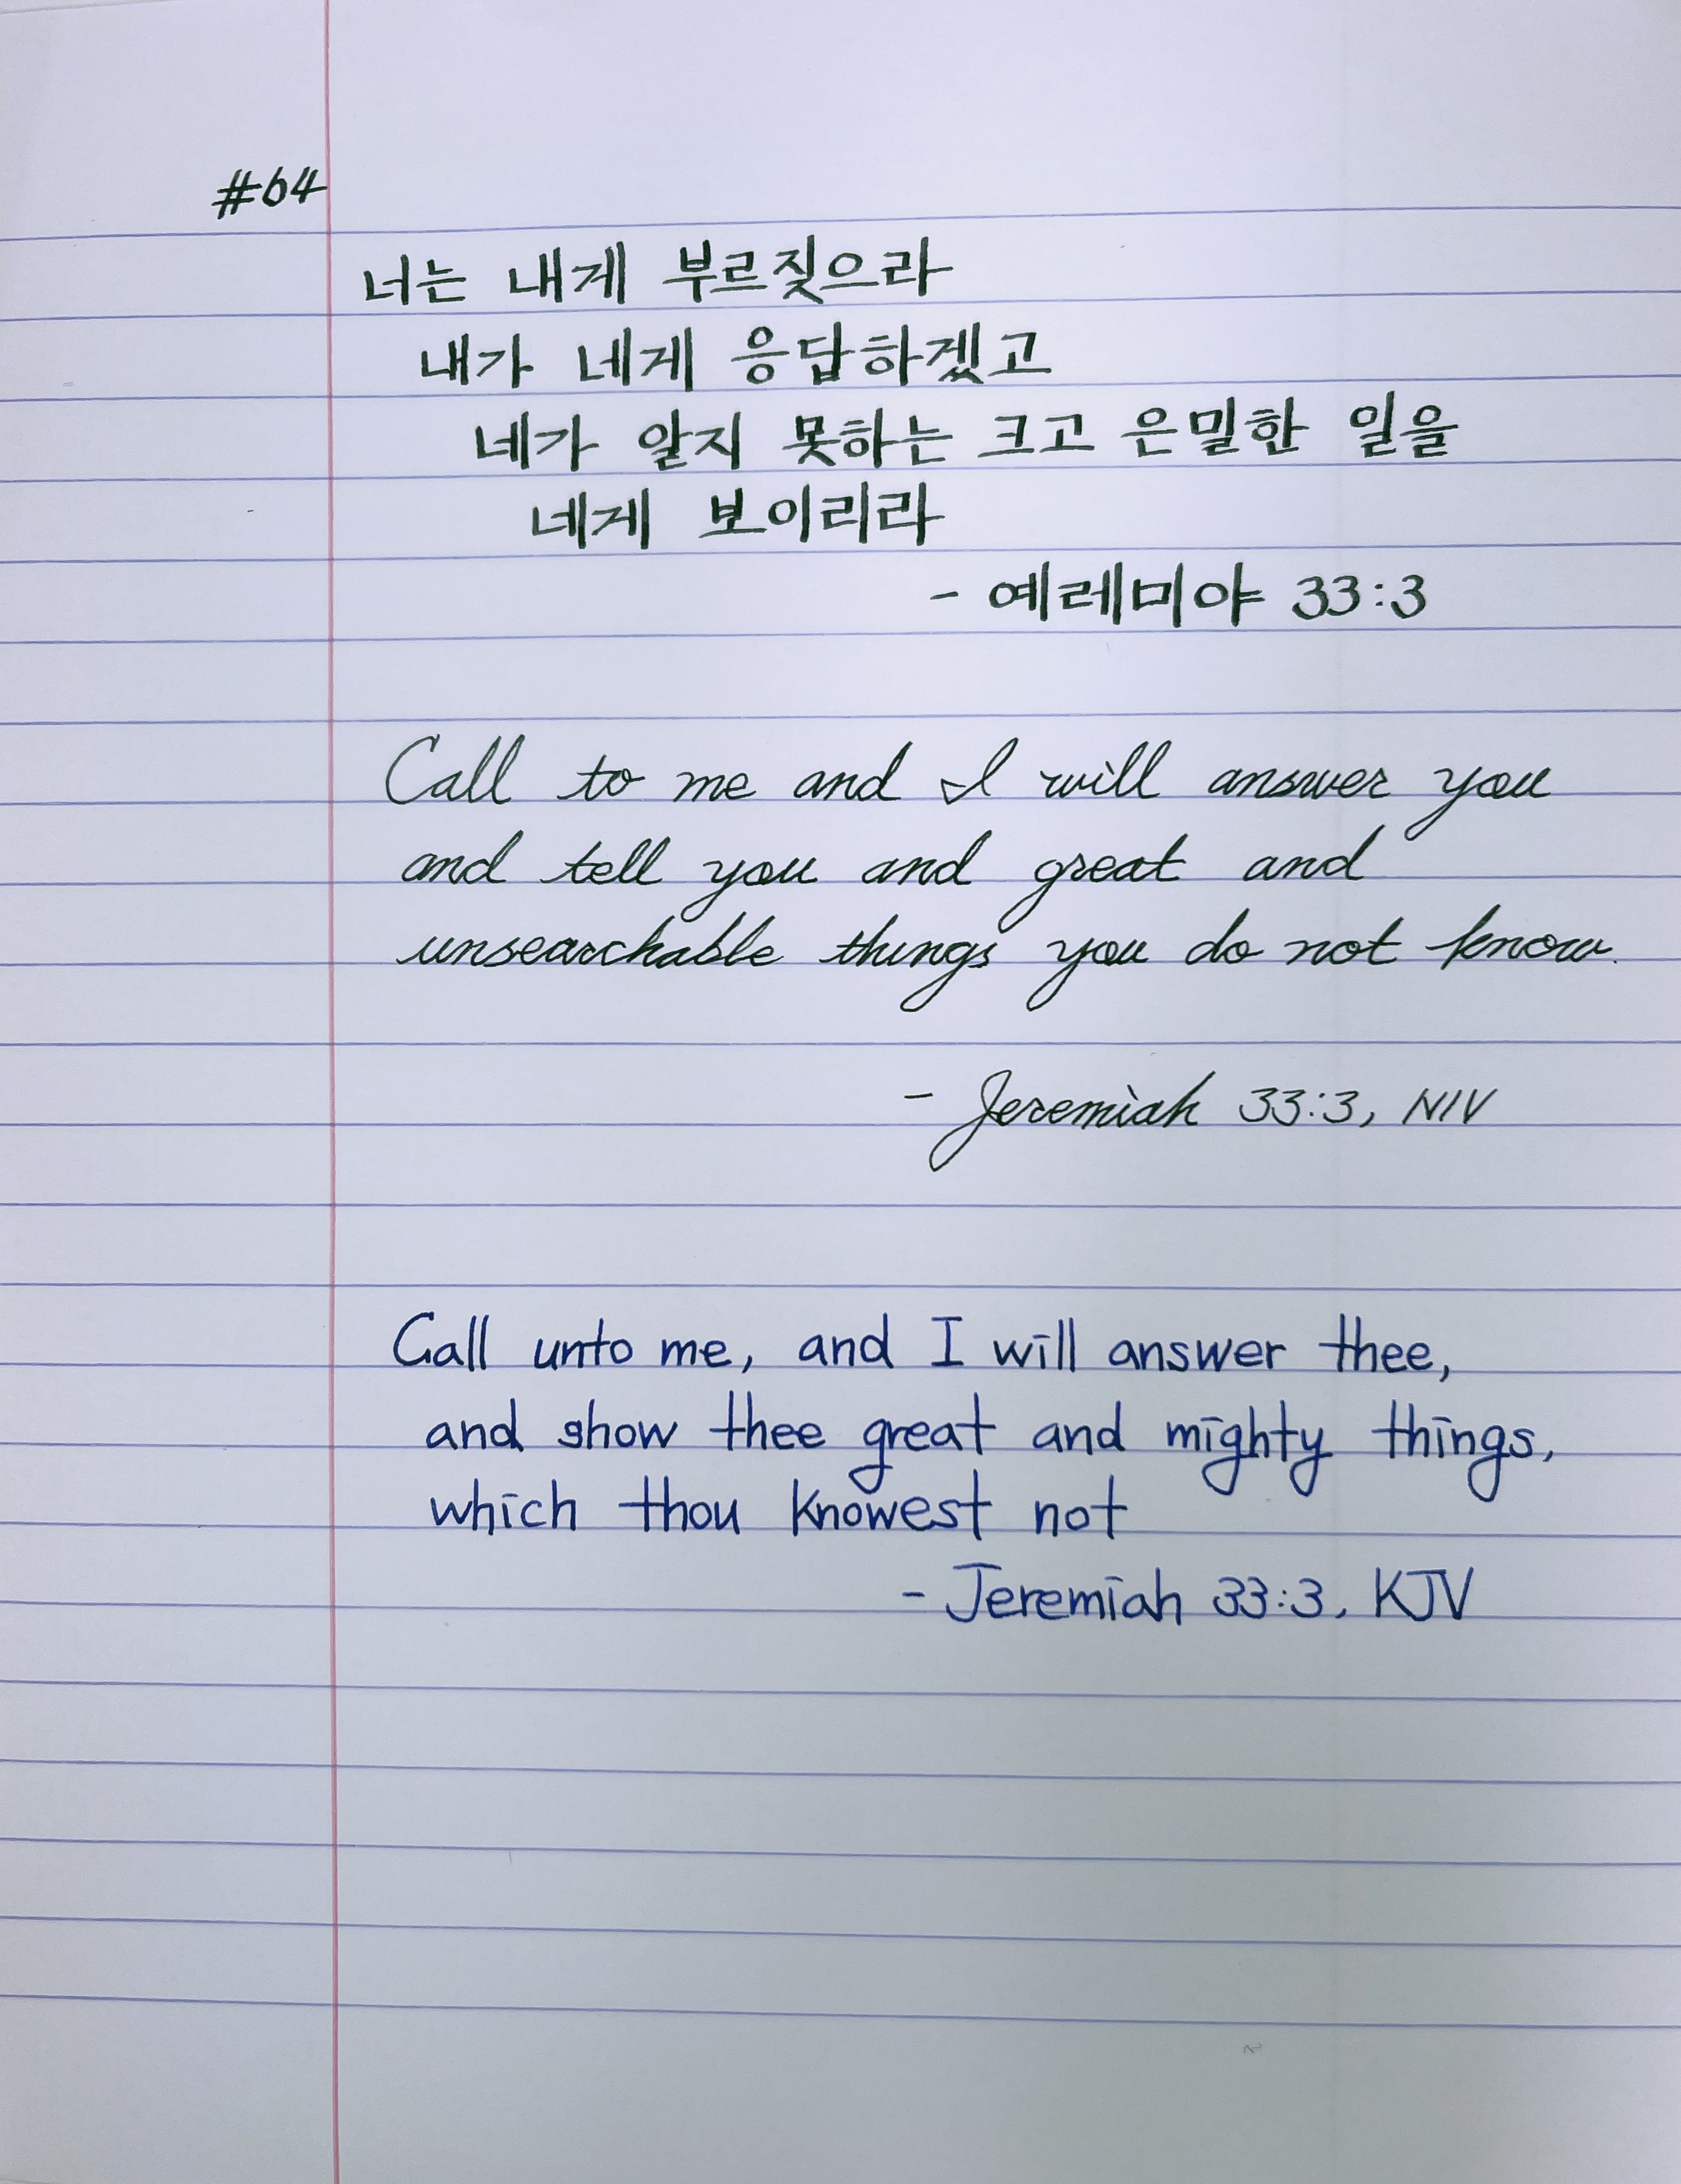 #64
너는 내게 부르짖으라
내가 네게 응답하겠고
네가 알지 못하는 크고 은밀한 일을
네게 보이리라
- 예레미야 33:3
Call to me and I will answer you
and tell you and great and
unsearchable things you do not know.
- Jeremiah 33:3, NIV
Call unto me, and I will answer thee,
and show thee great and mighty things,
which thou knowest not
- Jeremiah 33:3, KJV